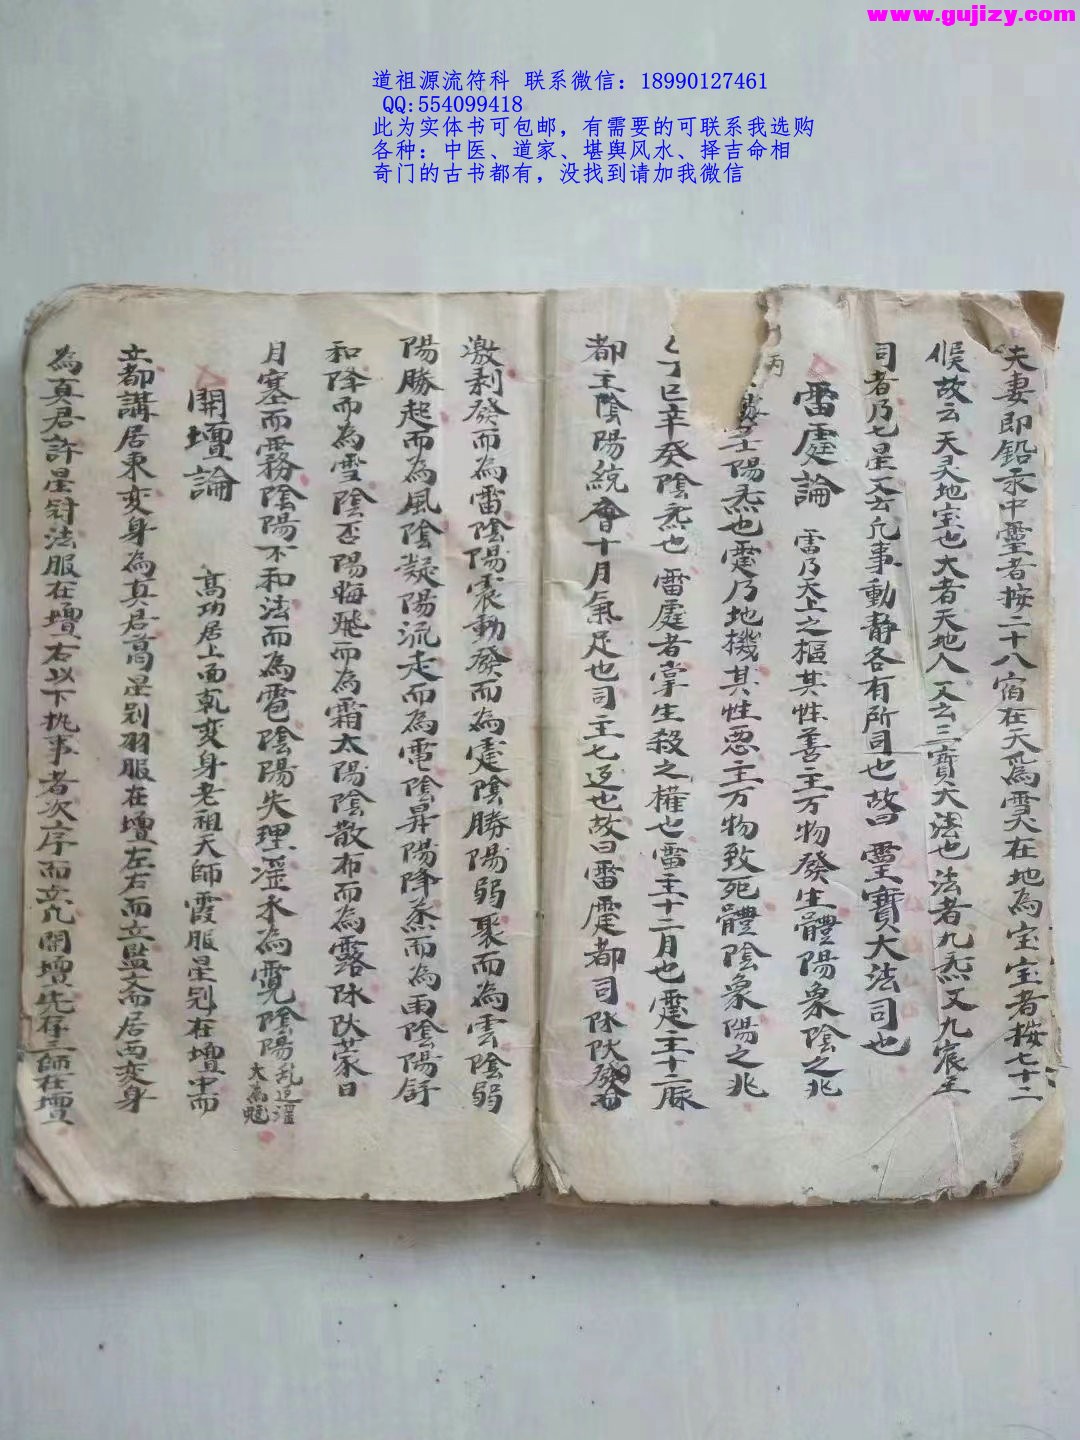 www.gujizy.com
道祖源流符科 联系微信：18990127461
QQ:554099418
此为实体书可包邮，有需要的可联系我选购
各种：中医、道家、堪舆风水、择吉命相
奇门的古书都有，没找到请加我微信
夫妻即铅汞中靈者按二十八宿在天為雪天在地為宝宝者按七十二
候故云天灵地宝也大者天地人又云三寶大法也法者九炁又九宸主
司者乃七星又云凡事動静各有所司也故曰靈寶大法司也
雷霆論 雷乃天上之樞其性善主万物發生體陽象陰之兆
丙 壬陽炁也霆乃地機其性恶主万物致死體陰象陽之兆
丁巳辛癸陰炁也 雷庭者掌生殺之權也雷主十二月也霆主十二脈
都主陰陽統會十月氣足也司主七这也故曰雷霆都司休伏發
激剥發而為雷陰陽震動發而為霆陰勝陽弱聚而為雲陰弱
陽勝起而為風陰凝陽流走而為電陰昇陽降蒸而為雨陰陽舒
和降而為雪陰否陽晦飛而為霜太陽陰散布而為露休伏蒙日
月塞而霧陰陽不和法而為雹陰陽失理滛水為霓陰陽乱逆滛大為虺
開壇論 髙功居上面乹变身老祖天師霞服星剠在壇中而
立都講居東变身為真君葛星剠羽服在壇左右而立監斋居西变身
為真君許星 法服在壇右以下执事者次序而立凡開壇先存三師在壇